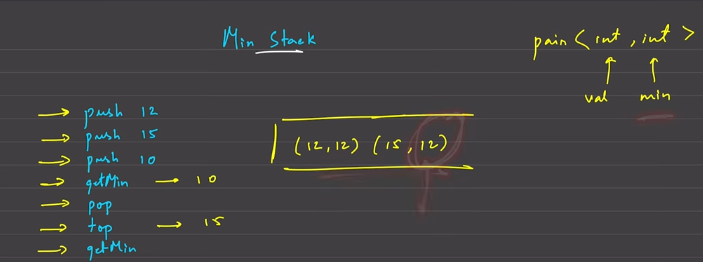 Min Stack
pair<int, int>
val min
push 12
push 15
push 10
getMin → 10
pop
top → 15
getMin
(12,12) (15, 12)